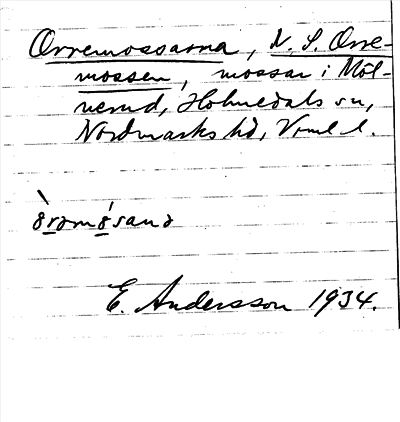 Orremossarna, N. S. Orre-
mossen, mossar i Möl-
nerud, Holmedals sn,
Nordmarks hd, Vrml l.
òrəmósanə
E. Andersson 1934.